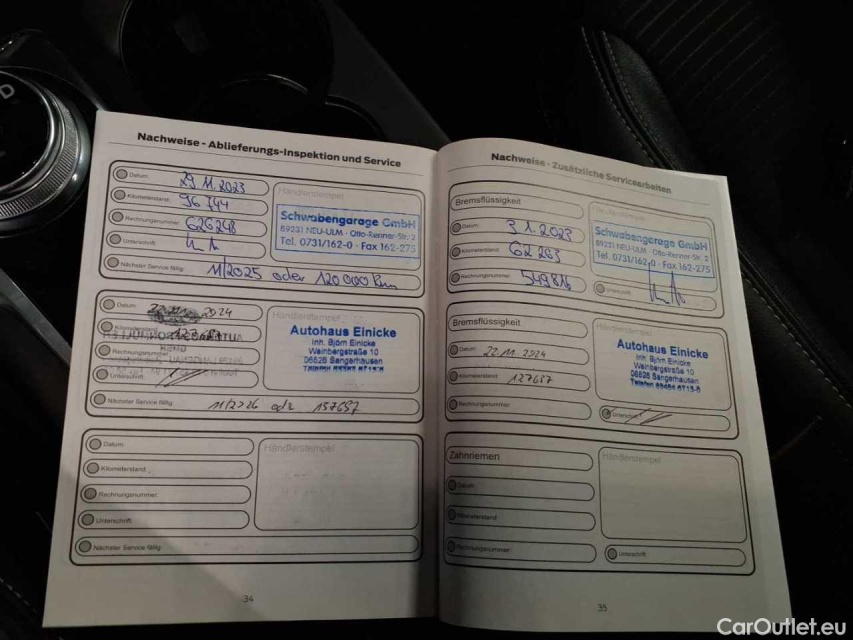 D
Nachweise - Ablieferungs-Inspektion und Service
Datum: 29.11.2023
Kilometerstand: 96 744
Rechnungsnummer: 626248
Unterschrift:
Nächster Service fällig: 11/2025 oder 120 000 km
Händlerstempel
Schwabengarage GmbH
89231 NEU-ULM · Otto-Renner-Str. 2
Tel. 0731/162-0 · Fax 162-275
Datum: 22.11.2024
Kilometerstand: 127687
Rechnungsnummer:
Unterschrift:
Nächster Service fällig: 11/2026 odr 157687
Händlerstempel
Autohaus Einicke
Inh. Björn Einicke
Weinbergstraße 10
06526 Sangerhausen
Datum:
Kilometerstand:
Rechnungsnummer:
Unterschrift:
Nächster Service fällig:
Händlerstempel
34
Nachweise - Zusätzliche Servicearbeiten
Bremsflüssigkeit
Datum: 3.1.2023
Kilometerstand: 62 293
Rechnungsnummer: 549816
Schwabengarage GmbH
89231 NEU-ULM · Otto-Renner-Str. 2
Tel. 0731/162-0 · Fax 162-275
Unterschrift:
Bremsflüssigkeit
Datum: 22.11.2024
Kilometerstand: 127687
Rechnungsnummer:
Händlerstempel
Autohaus Einicke
Inh. Björn Einicke
Weinbergstraße 10
06526 Sangerhausen
Unterschrift:
Zahnriemen
Datum:
Kilometerstand:
Rechnungsnummer:
Händlerstempel
Unterschrift:
35
CarOutlet.eu